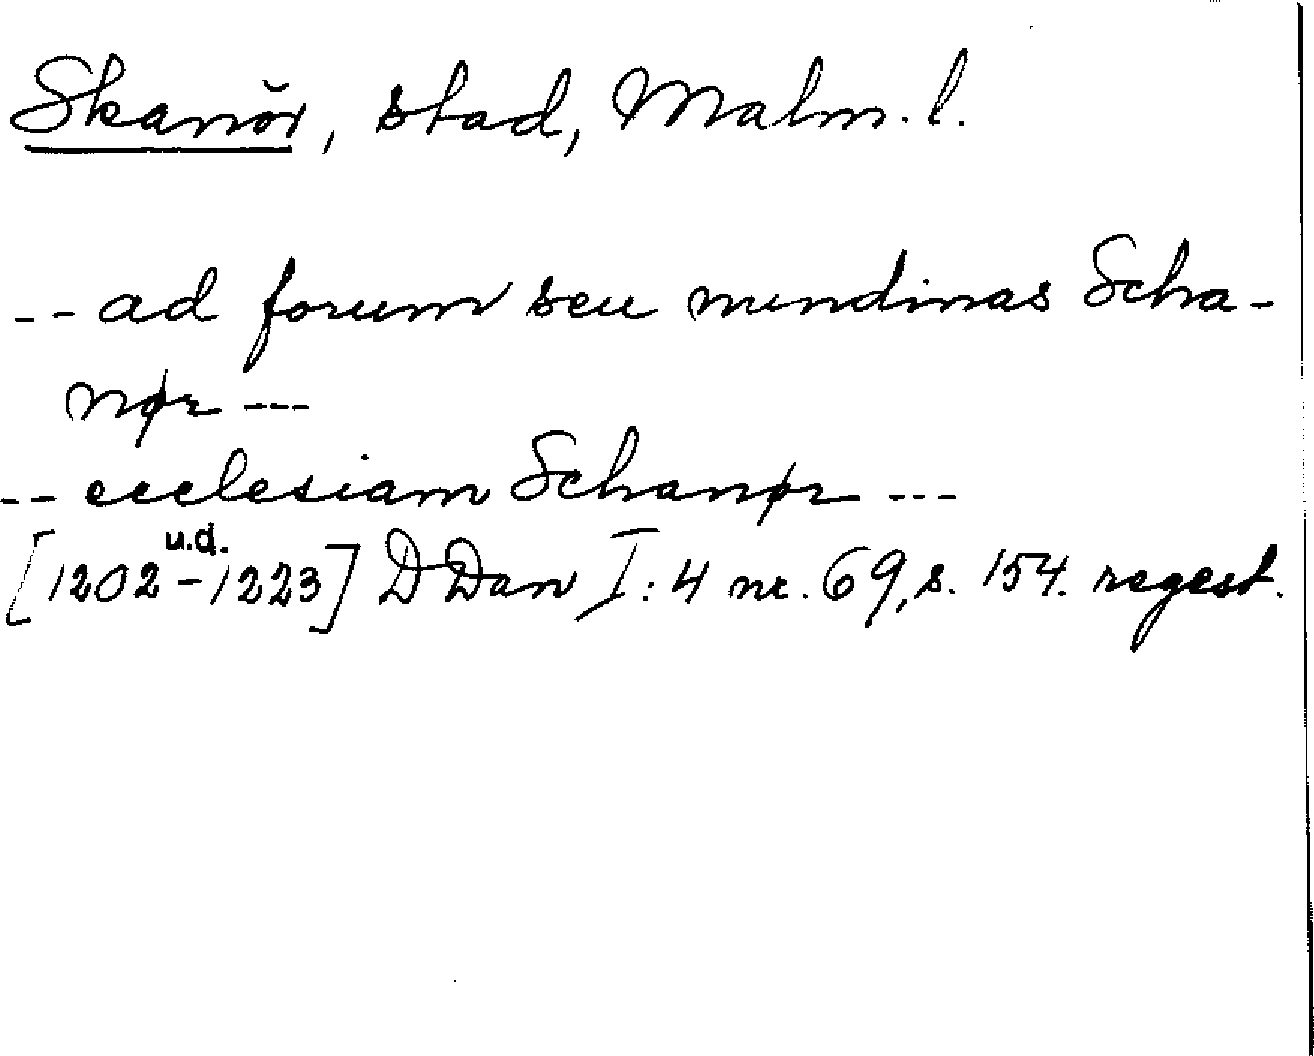 Skanör, stad, Malm. l.
-- ad forum seu nundinas Scha-
nør ---
-- ecclesiam Schanør ---
u.d.
[1202-1223] DDan I:4 nr. 69, s. 154. regest.